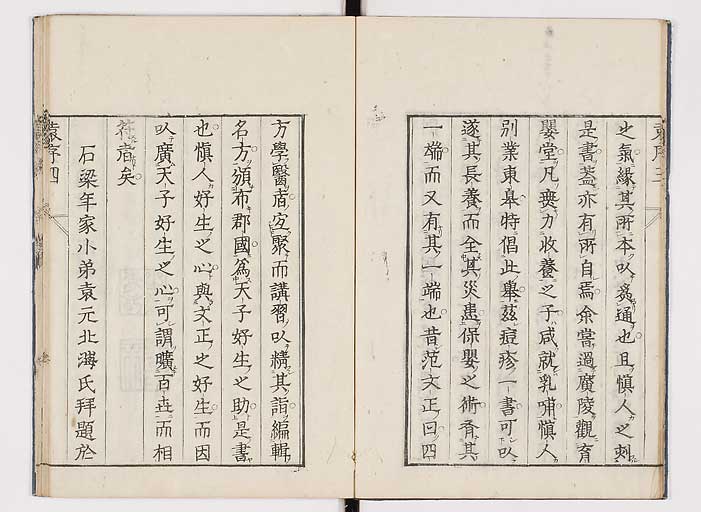 袁序三
之氣緣其所本以爲通也且愼人之刺
是書蓋亦有所自焉余嘗過廣陵觀育
嬰堂凡喪力收養之子咸就乳哺愼人
別業東皐特倡此舉茲痘疹一書可以
遂其長養而全其災患保嬰之術脊其
一端而又有其一端也昔范文正曰四
方學醫者宜聚而講習以精其詣編輯
名方頒布郡國爲天子好生之助是書
也愼人好生之心與文正之好生而因
以廣天子好生之心可謂曠百世而相
符者矣
石梁年家小弟袁元北海氏拜題於
袁序四